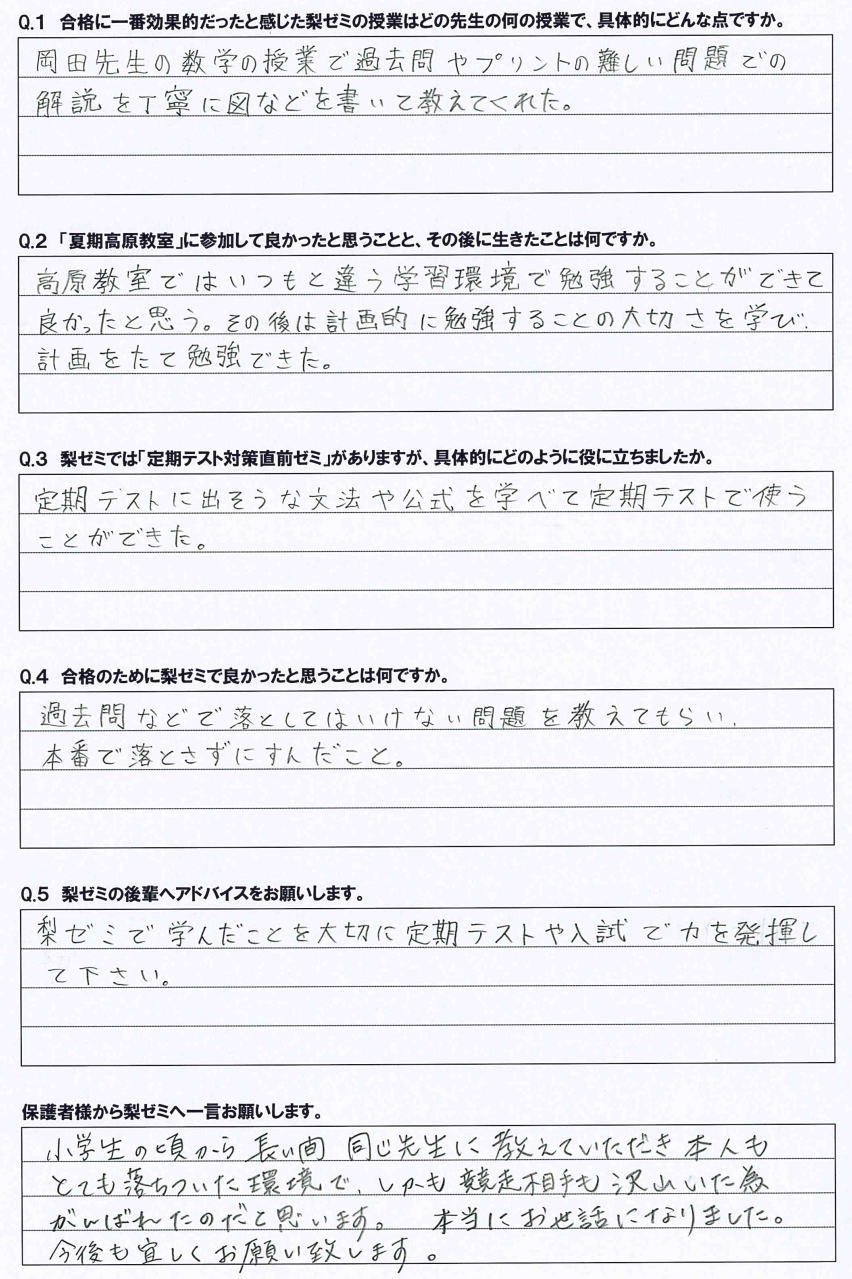 Q.1 合格に一番効果的だったと感じた梨ゼミの授業はどの先生の何の授業で、具体的にどんな点ですか。
岡田先生の数学の授業で過去問やプリントの難しい問題での
解説を丁寧に図などを書いて教えてくれた。
Q.2 「夏期高原教室」に参加して良かったと思うことと、その後に生きたことは何ですか。
高原教室ではいつもと違う学習環境で勉強することができて
良かったと思う。その後は計画的に勉強することの大切さを学び、
計画をたて勉強できた。
Q.3 梨ゼミでは「定期テスト対策直前ゼミ」がありますが、具体的にどのように役に立ちましたか。
定期テストに出そうな文法や公式を学べて定期テストで使う
ことができた。
Q.4 合格のために梨ゼミで良かったと思うことは何ですか。
過去問などで落としてはいけない問題を教えてもらい、
本番で落とさずにすんだこと。
Q.5 梨ゼミの後輩へアドバイスをお願いします。
梨ゼミで学んだことを大切に定期テストや入試で力を発揮し
て下さい。
保護者様から梨ゼミへ一言お願いします。
小学生の頃から長い間 同じ先生に教えていただき本人も
とても落ちついた環境で、しかも競走相手も沢山いた為
がんばれたのだと思います。 本当にお世話になりました。
今後も宜しくお願い致します。